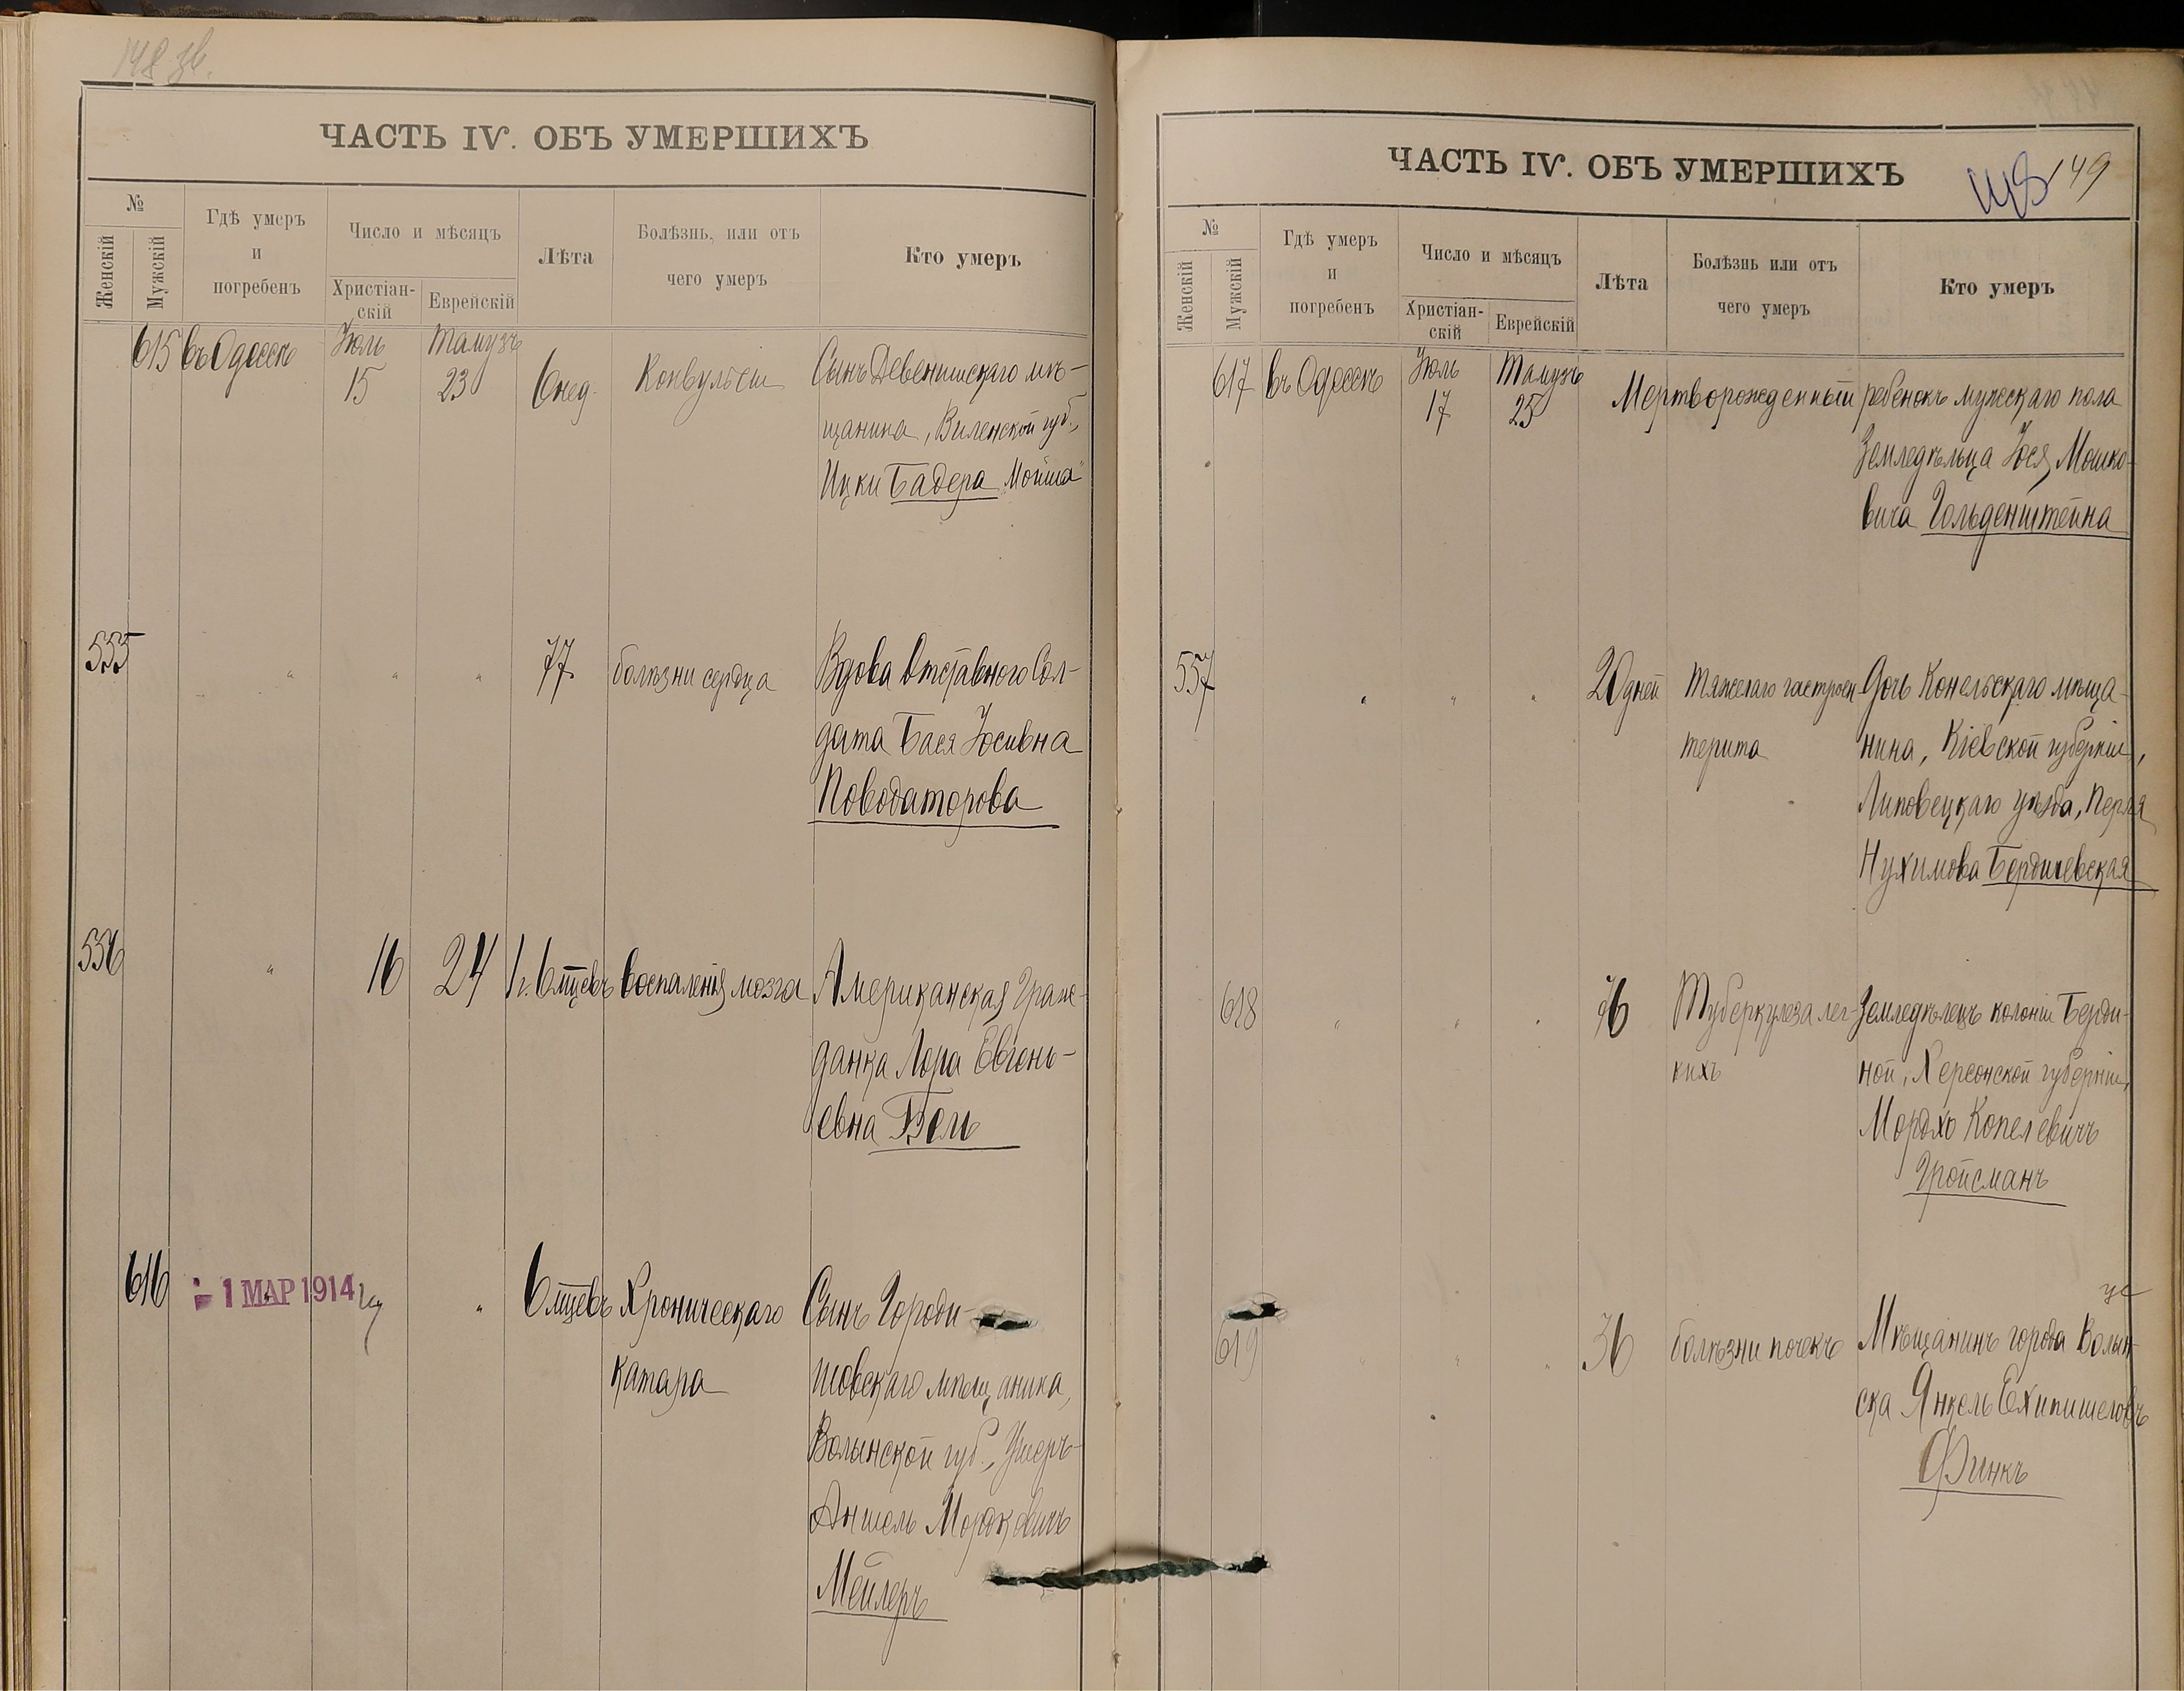 148 зв.
ЧАСТЬ IV. ОБЪ УМЕРШИХЪ
№
Женскій
Мужскій
Гдѣ умеръ
и
погребенъ
Число и мѣсяцъ
Христіан-
скій
Еврейскій
Лѣта
Болѣзнь, или отъ
чего умеръ
Кто умеръ
615 въ Одессѣ Іюль Тамузъ
15 23 6 нед. Конвульсіи Сынъ Девенишскаго мѣ-
щанина, Виленской губ.,
Ицки Бадера „Мойша“
555 " " " 77 болѣзни сердца Вдова Отставного Сол-
дата Бася Іосивна
Поводаторова
556 " 16 24 1 г. 6 мцевъ воспаленія мозга Американская Граж-
данка Лора Евгень-
евна Бель
616 - 1 МАР 1914 " 6 мцевъ Хроническаго Сынъ Городи-
катара
шовскаго мѣщанина,
Волынской губ., Ушеръ-
Аншель Мордковичъ
Мейлеръ
ЧАСТЬ IV. ОБЪ УМЕРШИХЪ
149
№
Женскій
Мужскій
Гдѣ умеръ
и
погребенъ
Число и мѣсяцъ
Христіан-
скій
Еврейскій
Лѣта
Болѣзнь или отъ
чего умеръ
Кто умеръ
617 въ Одессѣ Іюль Тамузъ
17 25 Мертворожденный ребенокъ мужскаго пола
Земледѣльца Іося Мошко-
вича Гольденштейна
557 " " " 20 дней Тяжелаго гастроэн- Дочь Конельскаго мѣща-
терита нина, Кіевской губерніи,
Липовецкаго уѣзда, Перля
Нухимова Бердичевская
618 " " " 76 Туберкулеза лег- Земледѣлецъ колоніи Берди-
кихъ ной, Херсонской губерніи,
Мордхо Копелевичъ
Гройсманъ
619 " " " 36 болѣзни почекъ Мѣщанинъ города Волын-
ска Янкель
Финкъ